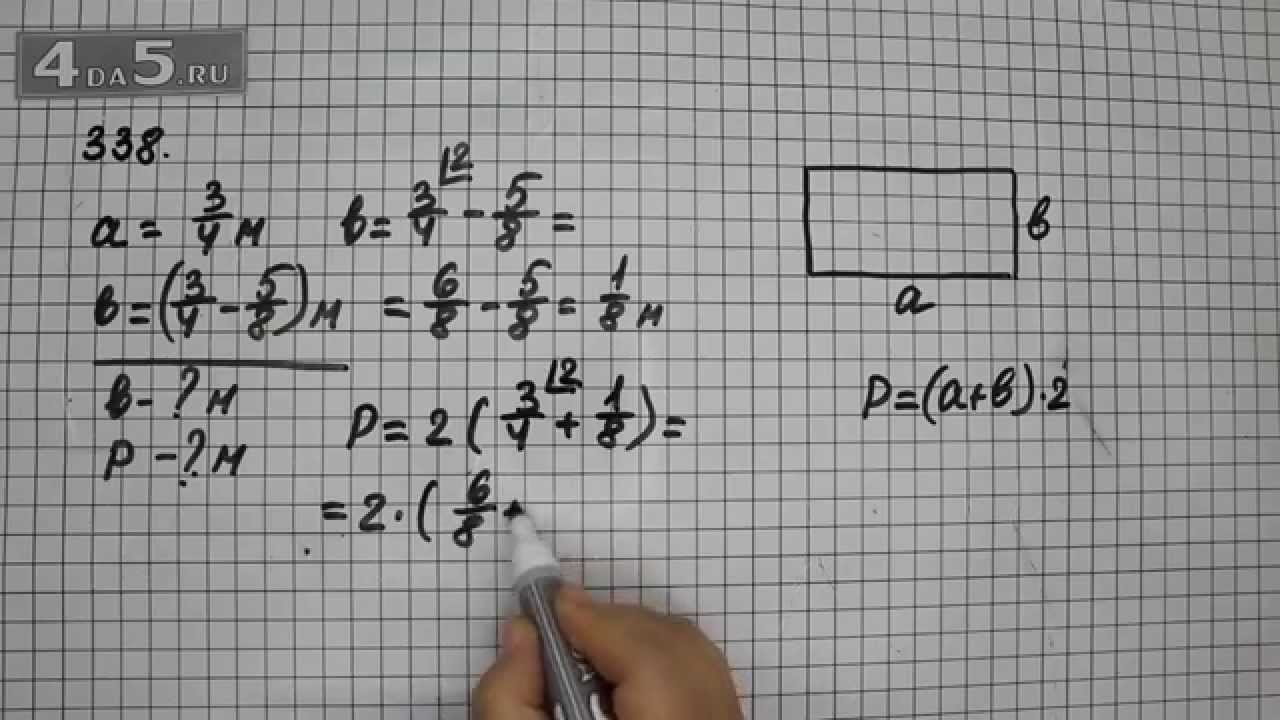 4DA5.RU
338.
a = 3/4 м
в = (3/4 - 5/8) м
в - ? м
P - ? м
в = 3/4 ⌊2 - 5/8 =
= 6/8 - 5/8 = 1/8 м
P = 2 ( 3/4 ⌊2 + 1/8 ) =
= 2 · ( 6/8 +
в
a
P = (a+в)·2